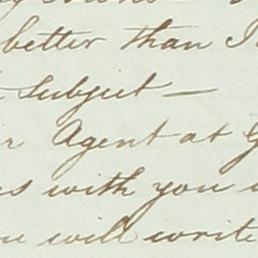 better than I
subject —
r Agent at G
s with you
u will write